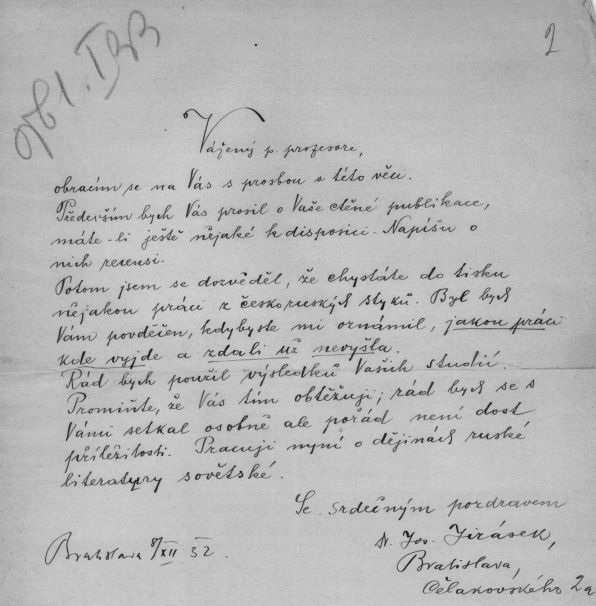 2
961. IRB
Vážený p. profesore,
obracím se na Vás s prosbou o této věci.
Především bych Vás prosil o Vaše ctěné publikace,
máte-li ještě nějaké k disposici. Napíšu o
nich recensi.
Potom jsem se dozvěděl, že chystáte do tisku
nějakou práci z českoruských styků. Byl bych
Vám povděčen, kdybyste mi oznámil, jakou práci
kde vyjde a zdali už nevyšla.
Rád bych použil výsledků Vašich studií.
Promiňte, že Vás tím obtěžuji; rád bych se s
Vámi setkal osobně ale pořád není dost
příležitosti. Pracuji nyní o dějinách ruské
literatury sovětské.
Se srdečným pozdravem
Dr. Jos. Jirásek,
Bratislava 8/XII 32.
Bratislava,
Čelakovského 2a